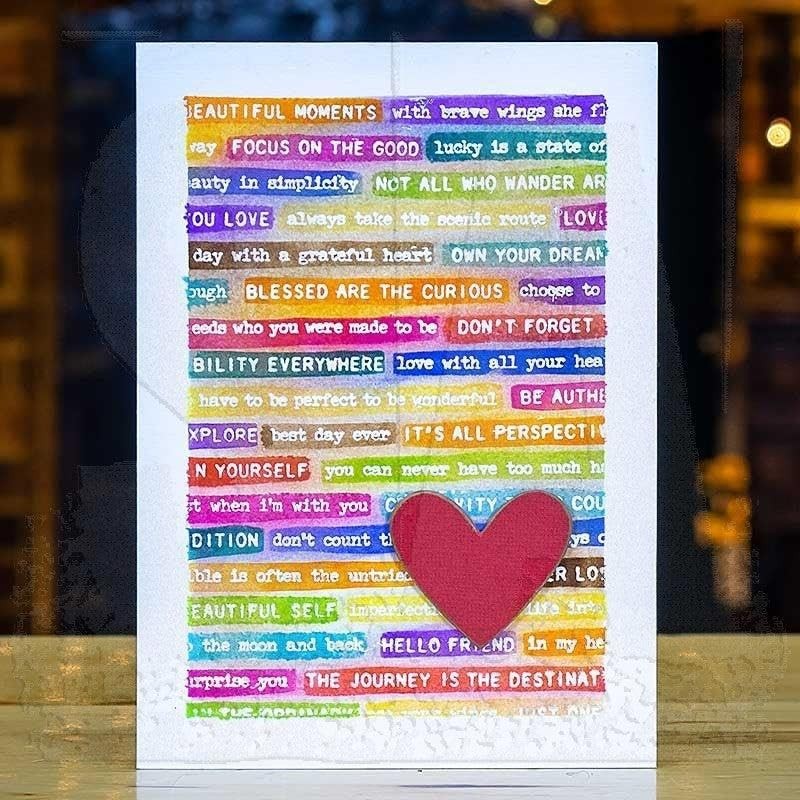 EAUTIFUL MOMENTS with brave wings she fl
way FOCUS ON THE GOOD lucky is a state of
auty in simplicity NOT ALL WHO WANDER AR
OU LOVE always take the scenic route LOVE
day with a grateful heart OWN YOUR DREAM
ough BLESSED ARE THE CURIOUS choose to
eeds who you were made to be DON'T FORGET
BILITY EVERYWHERE love with all your hea
have to be perfect to be wonderful BE AUTHE
XPLORE best day ever IT'S ALL PERSPECTIV
N YOURSELF you can never have too much ha
t when i'm with you COU
DITION don't count th ys
ble is often the untried ER LOS
EAUTIFUL SELF imperfecti life
the moon and back HELLO FRIEND in my he
urprise you THE JOURNEY IS THE DESTINAT
THE ORDINARY